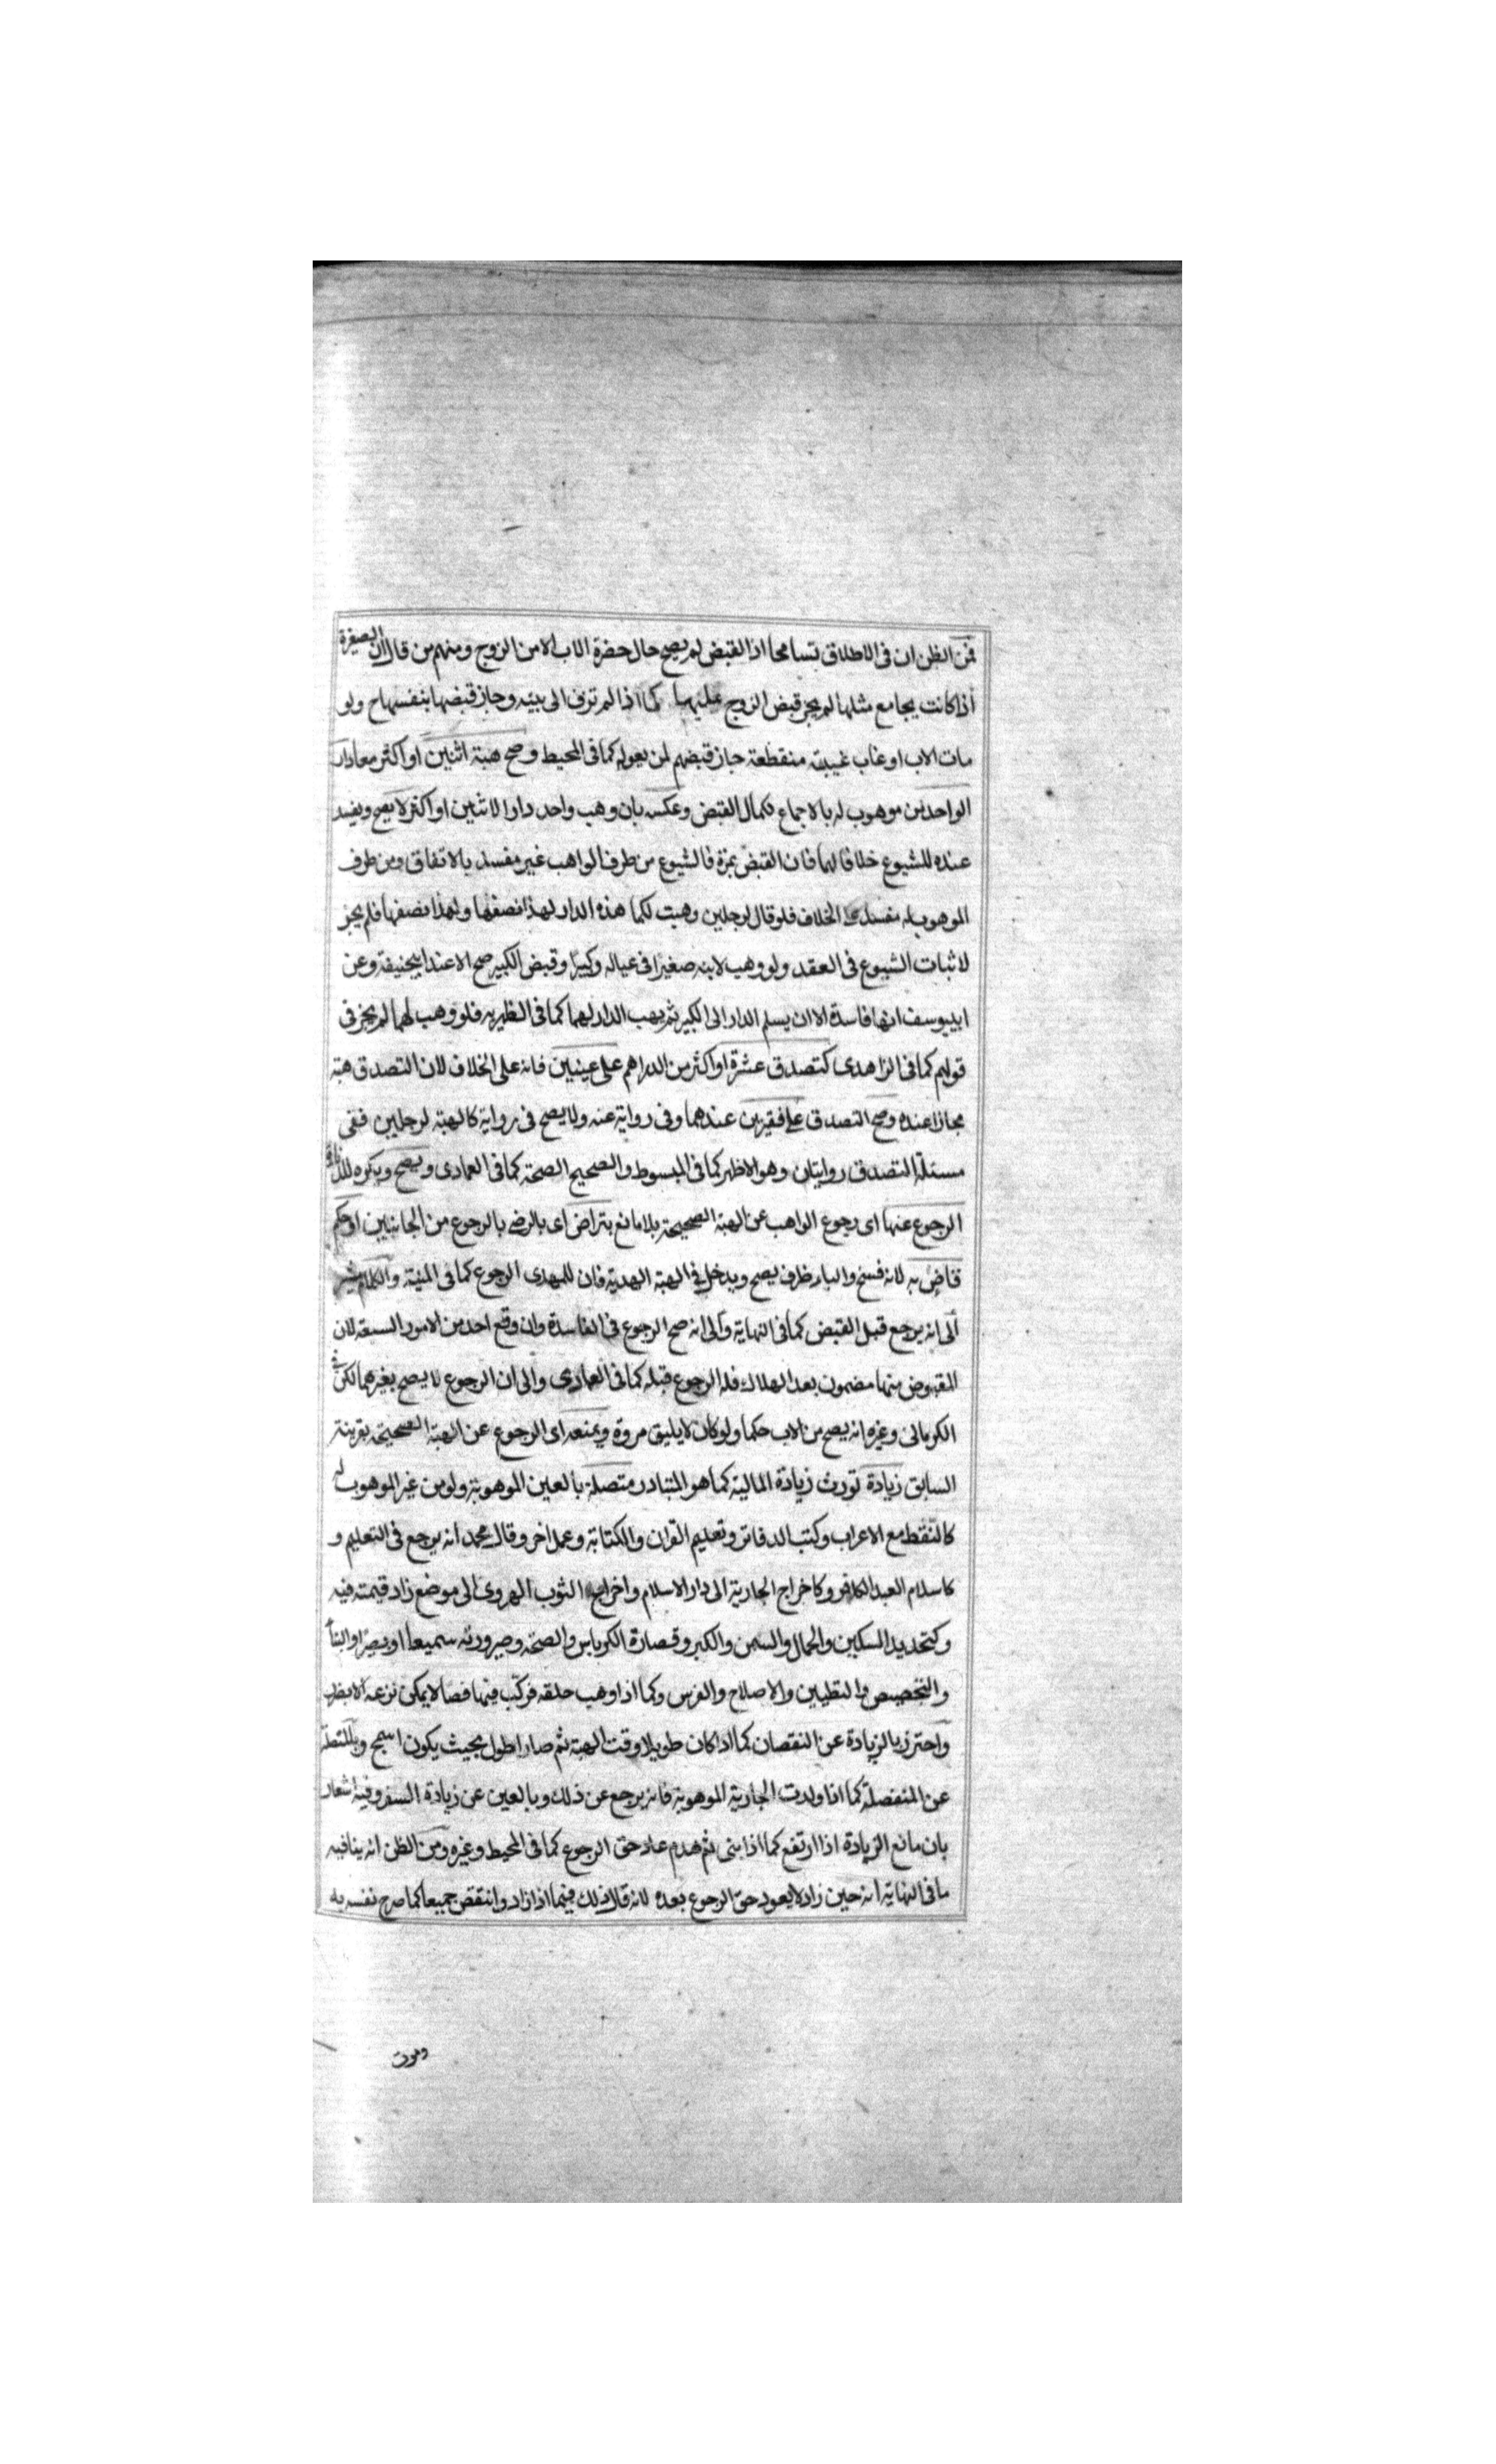 فمن الظن ان فى الاطلاق تسامحا اذ القبض لم يصح حال حضرة الاب الا من الزوج ومنهم من قال ان الصغيرة
اذا كانت يجامع مثلها لم يجز قبض الزوج عليها كما اذا لم تزف الى بيته وجاز قبضها بنفسها ح ولو
مات الاب او غاب غيبته منقطعة جاز قبضهم لمن يعوله كما فى المحيط وصح هبة اثنين او اكثر معا دارا
الواحد من موهوب له بالاجماع لكمال القبض وعكسه بان وهب واحد دارا لاثنين او اكثر لا يصح ويفسد
عنده للشيوع خلافا لهما فان القبض بمرة فالشيوع من طرف الواهب غير مفسد بالاتفاق ومن طرف
الموهوب له مفسد على الخلاف فلو قال لرجلين وهبت لكما هذه الدار لهذا نصفها ولهذا نصفها فلم يجز
لاثبات الشيوع فى العقد ولو وهب لابنه صغيرا فى عياله وكبيرا وقبض الكبير صح الا عند ابيحنيفة وعن
ابيوسف انها فاسدة الا ان يسلم الدار الى الكبير ثم يهب الدار لهما كما فى الظهيريه فلو وهب لهما لم يجز فى
قولهم كما فى الزاهدى كتصدق عشرة او اكثر من الدراهم على غنيين فانه على الخلاف لان التصدق هبة
مجازا عنده وصح التصدق على فقيرين عندهما وفى رواية عنه ولا يصح فى رواية كالهبة لرجلين ففى
مسئلة التصدق روايتان وهو الاظهر كما فى المبسوط والصحيح الصحة كما فى العمادى ويصح ويكره
الرجوع عنها اى رجوع الواهب عن الهبة الصحيحة بلا مانع بتراض اى بالرضى بالرجوع من الجانبين او حكم
قاض به لانه فسخ والباء ظرف يصح ويدخل فى الهبة الهدية فان للمهدى الرجوع كما فى المنية والكلام مشير
الى انه يرجع قبل القبض كما فى النهاية والى انه صح الرجوع فى الفاسدة وان وقع احد من الامور السبعة لان
المقبوض منها مضمون بعد الهلاك فله الرجوع قبله كما فى العمادى والى ان الرجوع لا يصح بغيرهما لكن فى
الكرمانى وغيره انه يصح من الاب حكما ولو كان لا يليق مروة ويمنعه اى الرجوع عن الهبة الصحيحة بقرينة
السابق زيادة تورث زيادة المالية كما هو المتبادر متصلة بالعين الموهوبة ولو من غير الموهوب له
كالنقط مع الاعراب وكتب الدفاتر وتعليم القران والكتابة وعمل اخر وقال محمد انه يرجع فى التعليم و
كاسلام العبد الكافر وكاخراج الجارية الى دار الاسلام واخراج الثوب الهروى الى موضع زاد قيمته فيه
وكتحديد السكين والجمال والسمن والكبر وقصارة الكرباس والصحة وصيرورته سميعا او بصيرا والبناء
والتجصيص والتطيين والاصلاح والغرس وكما اذا وهب حلقة فركب فيها فصا لا يمكن نزعه الا بضرر
واحترز بالزيادة عن النقصان كما اذا كان طويلا وقت الهبة ثم صار اطول بحيث يكون اسمج وبالمتصلة
عن المنفصلة كما اذا ولدت الجارية الموهوبة فانه يرجع عن ذلك وبالعين عن زيادة السعر وفيه اشعار
بان مانع الزيادة اذا ارتفع كما اذا بنى ثم هدم عاد حق الرجوع كما فى المحيط وغيره ومن الظن انه ينافيه
ما فى النهاية انه حين زاد لا يعود حق الرجوع بعده لانه قال ذلك فيما اذا زاد وانتقض جميعا كما صرح نفسه به
وموت